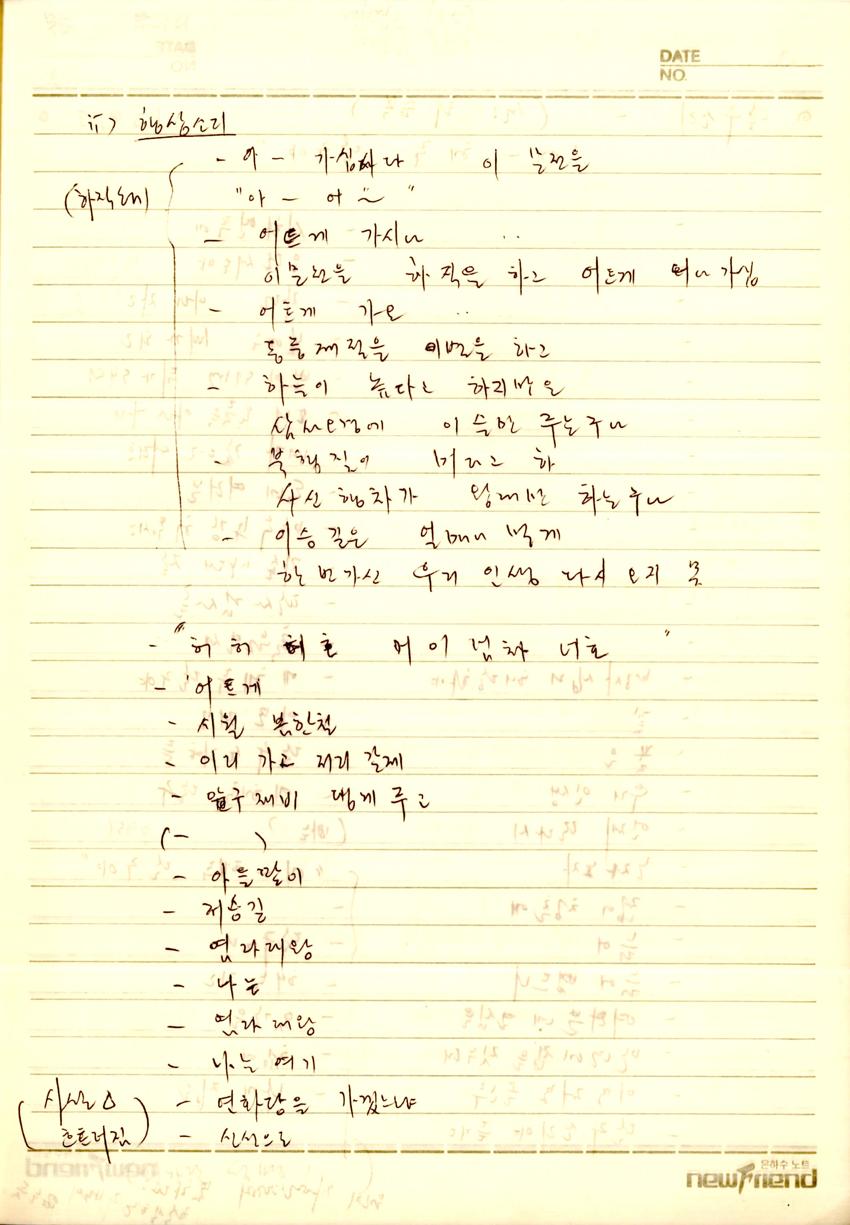 DATE
NO.
ii) 행상소리
- 아 - 가심하다 이 문전을
(하직소리) "아 - 어 ~ "
- 어트게 가시나 ..
이문전을 하직을 하고 어트게 떠나가심
- 어트게 가요 ..
동중제절을 이별을 하고
- 하늘이 높다고 하리만은
삼사오경에 이슬만 주는구나
- 북행길이 머다고 하
사신행차가 왕래만 하는구나
- 이승길은 얼매나 멀게
한번가신 우리 인생 다시 오지 못
- "허 허 허호 에이 넘차 너호 "
- 어트게
- 시월 봄한철
- 이리 가고 저리 갈제
- 말구재비 댕게 주고
(- )
- 아들딸이
- 저승길
- 염라대왕
- 나는
- 염라대왕
- 나는 여기
(사설 △ - 연화당을 가겠느냐
흐트러짐) - 신선으로
은하수 노트
newFriend